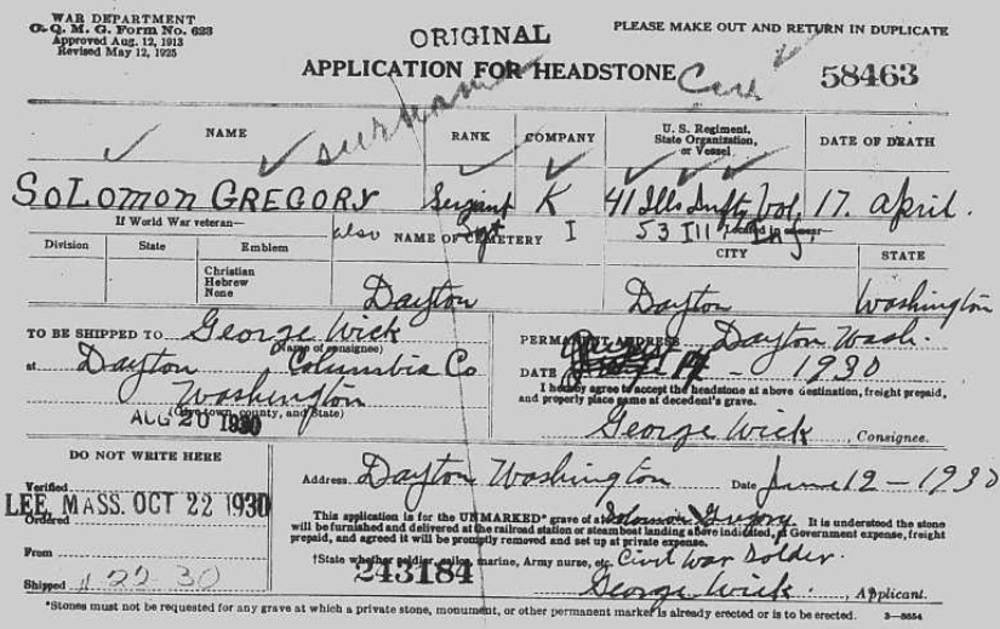 WAR DEPARTMENT
O. Q. M. G. Form No. 623
Approved Aug. 12, 1913
Revised May 12, 1925
ORIGINAL
PLEASE MAKE OUT AND RETURN IN DUPLICATE
APPLICATION FOR HEADSTONE
58463
NAME RANK COMPANY U. S. Regiment, State Organization, or Vessel DATE OF DEATH
SOLOMON GREGORY Serjant K 41 Ills Infty Vol. 17. April.
If World War veteran—
also Sgt I 53 Ill. Inf.
Division State Emblem NAME OF CEMETERY Located in or near— CITY STATE
Christian
Hebrew
None
Dayton Dayton Washington
TO BE SHIPPED TO George Wick
(Name of consignee)
at Dayton, Columbia Co
Washington
(Give town, county, and State)
AUG 20 1930
PERMANENT ADDRESS Dayton Wash.
DATE - 1930
I hereby agree to accept the headstone at above destination, freight prepaid,
and properly place same at decedent's grave.
George Wick, Consignee.
DO NOT WRITE HERE
Verified
LEE, MASS. OCT 22 1930
Ordered
From
Shipped 11 22 30
Address Dayton Washington Date June 12 - 1930
This application is for the UNMARKED* grave of a Solomon Gregory. It is understood the stone
will be furnished and delivered at the railroad station or steamboat landing above indicated, at Government expense, freight
prepaid, and agreed it will be promptly removed and set up at private expense.
†State whether soldier, sailor, marine, Army nurse, etc. Civil War Solder.
243184
George Wick, Applicant.
*Stones must not be requested for any grave at which a private stone, monument, or other permanent marker is already erected or is to be erected. 3—8654